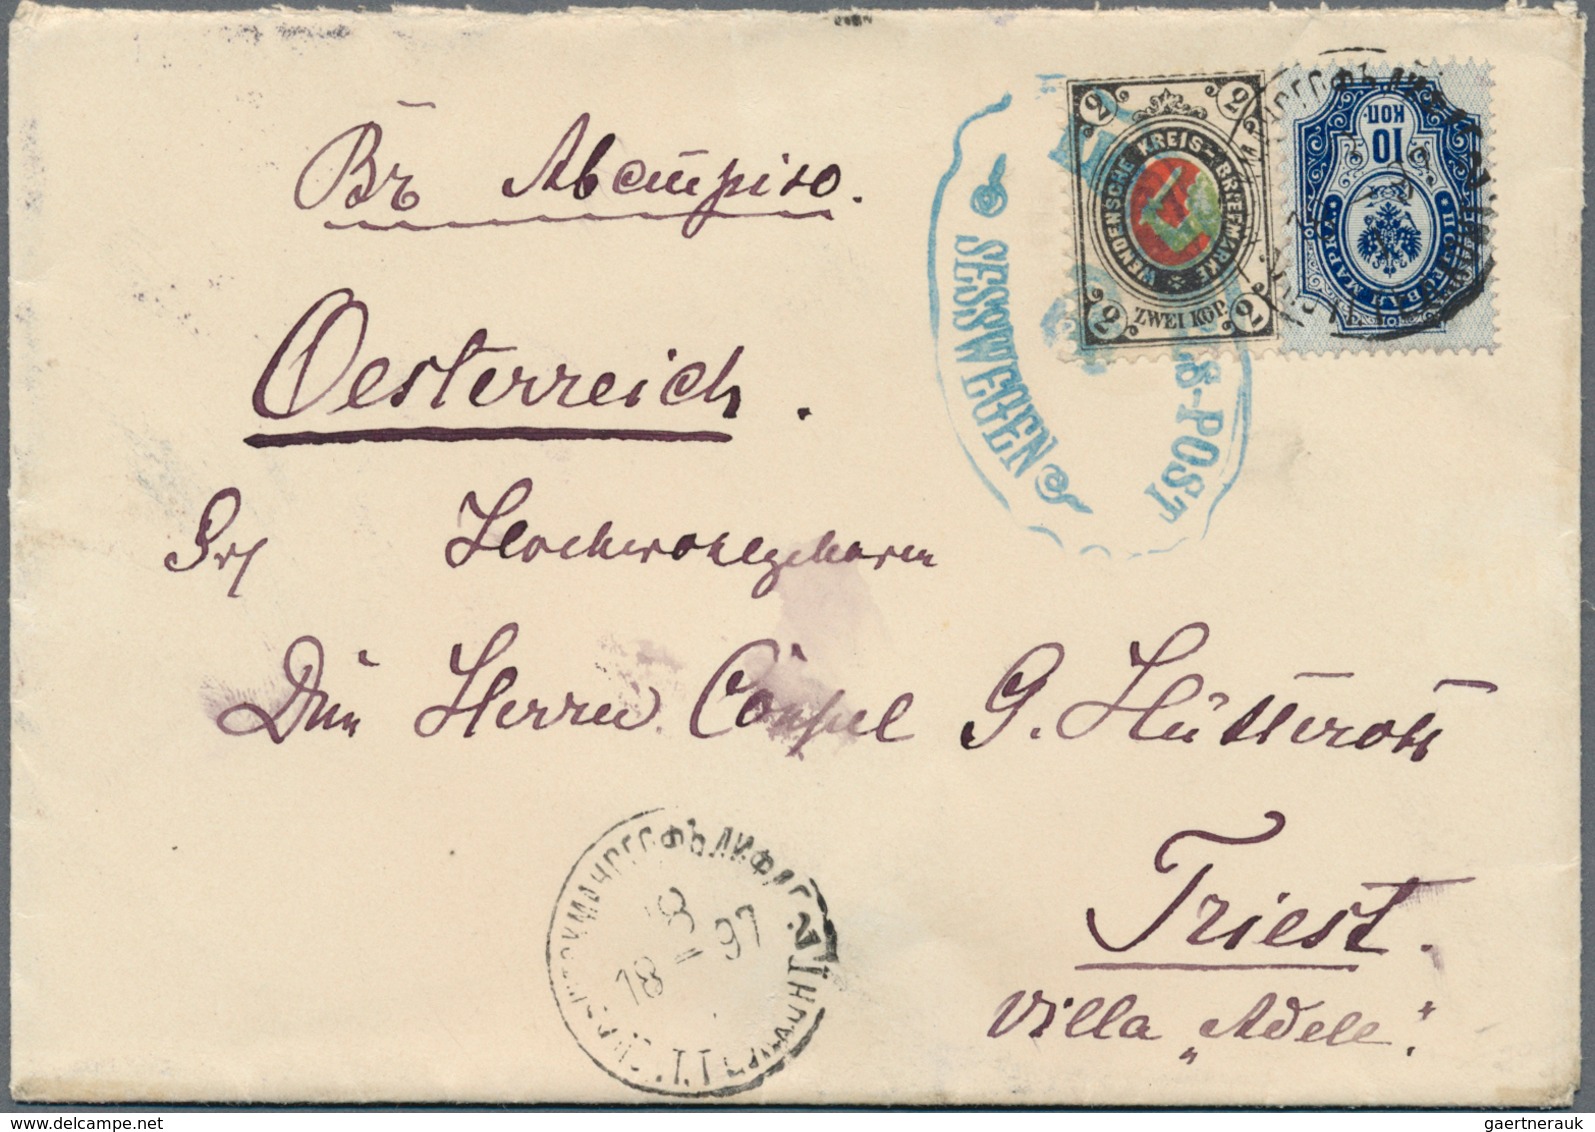 Въ Австрію.
Oesterreich.
Sr Hochwohlgeboren
Dem Herrn Consul G. Hütterott
Triest.
Villa „Adele“.
2 2
WENDENSCHE KREIS-BRIEFMARKE
ZWEI KOP.
2 2
10 КОП.
ПОЧТОВАЯ МАРКА
SESSWEGEN
S-POST
18 97
gaertnerauk